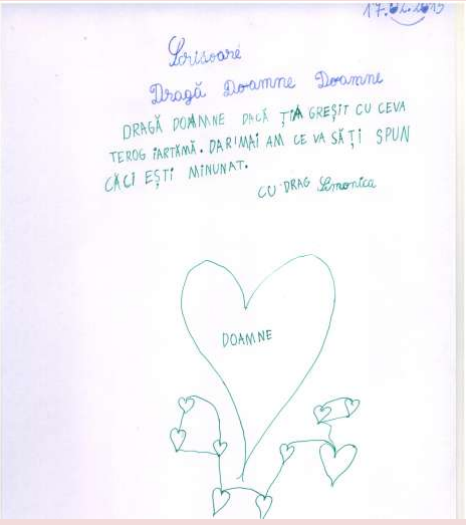 Scrisoare
Dragă Doamne Doamne
DRAGĂ DOAMNE DACĂ ȚIA GREȘIT CU CEVA
TEROG IARTĂMĂ. DAR MAI AM CE VA SĂ ȚI SPUN
CĂCI EȘTI MINUNAT.
CU DRAG Simonica
DOAMNE